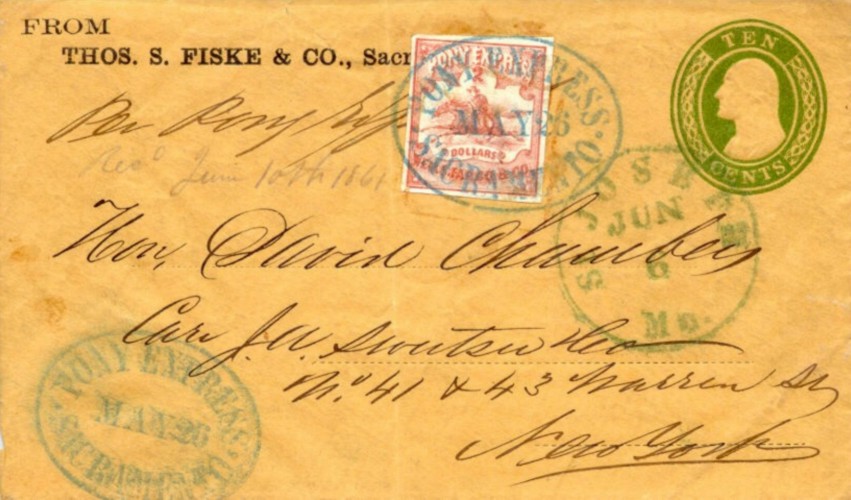 FROM
THOS. S. FISKE & CO., Sacr
TEN
CENTS
PONY EXPRESS
2
DOLLARS
WELLS, FARGO & CO
PONY EXPRESS
MAY 26
SACRAMENTO
Per Pony Exp
Rec'd June 10th 1861
ST JOSEPH
JUN
6
Mo.
Hon. David Chambers
Care J. A. Sweetser
No 41 & 43 Warren St
New York
PONY EXPRESS
MAY 26
SACRAMENTO